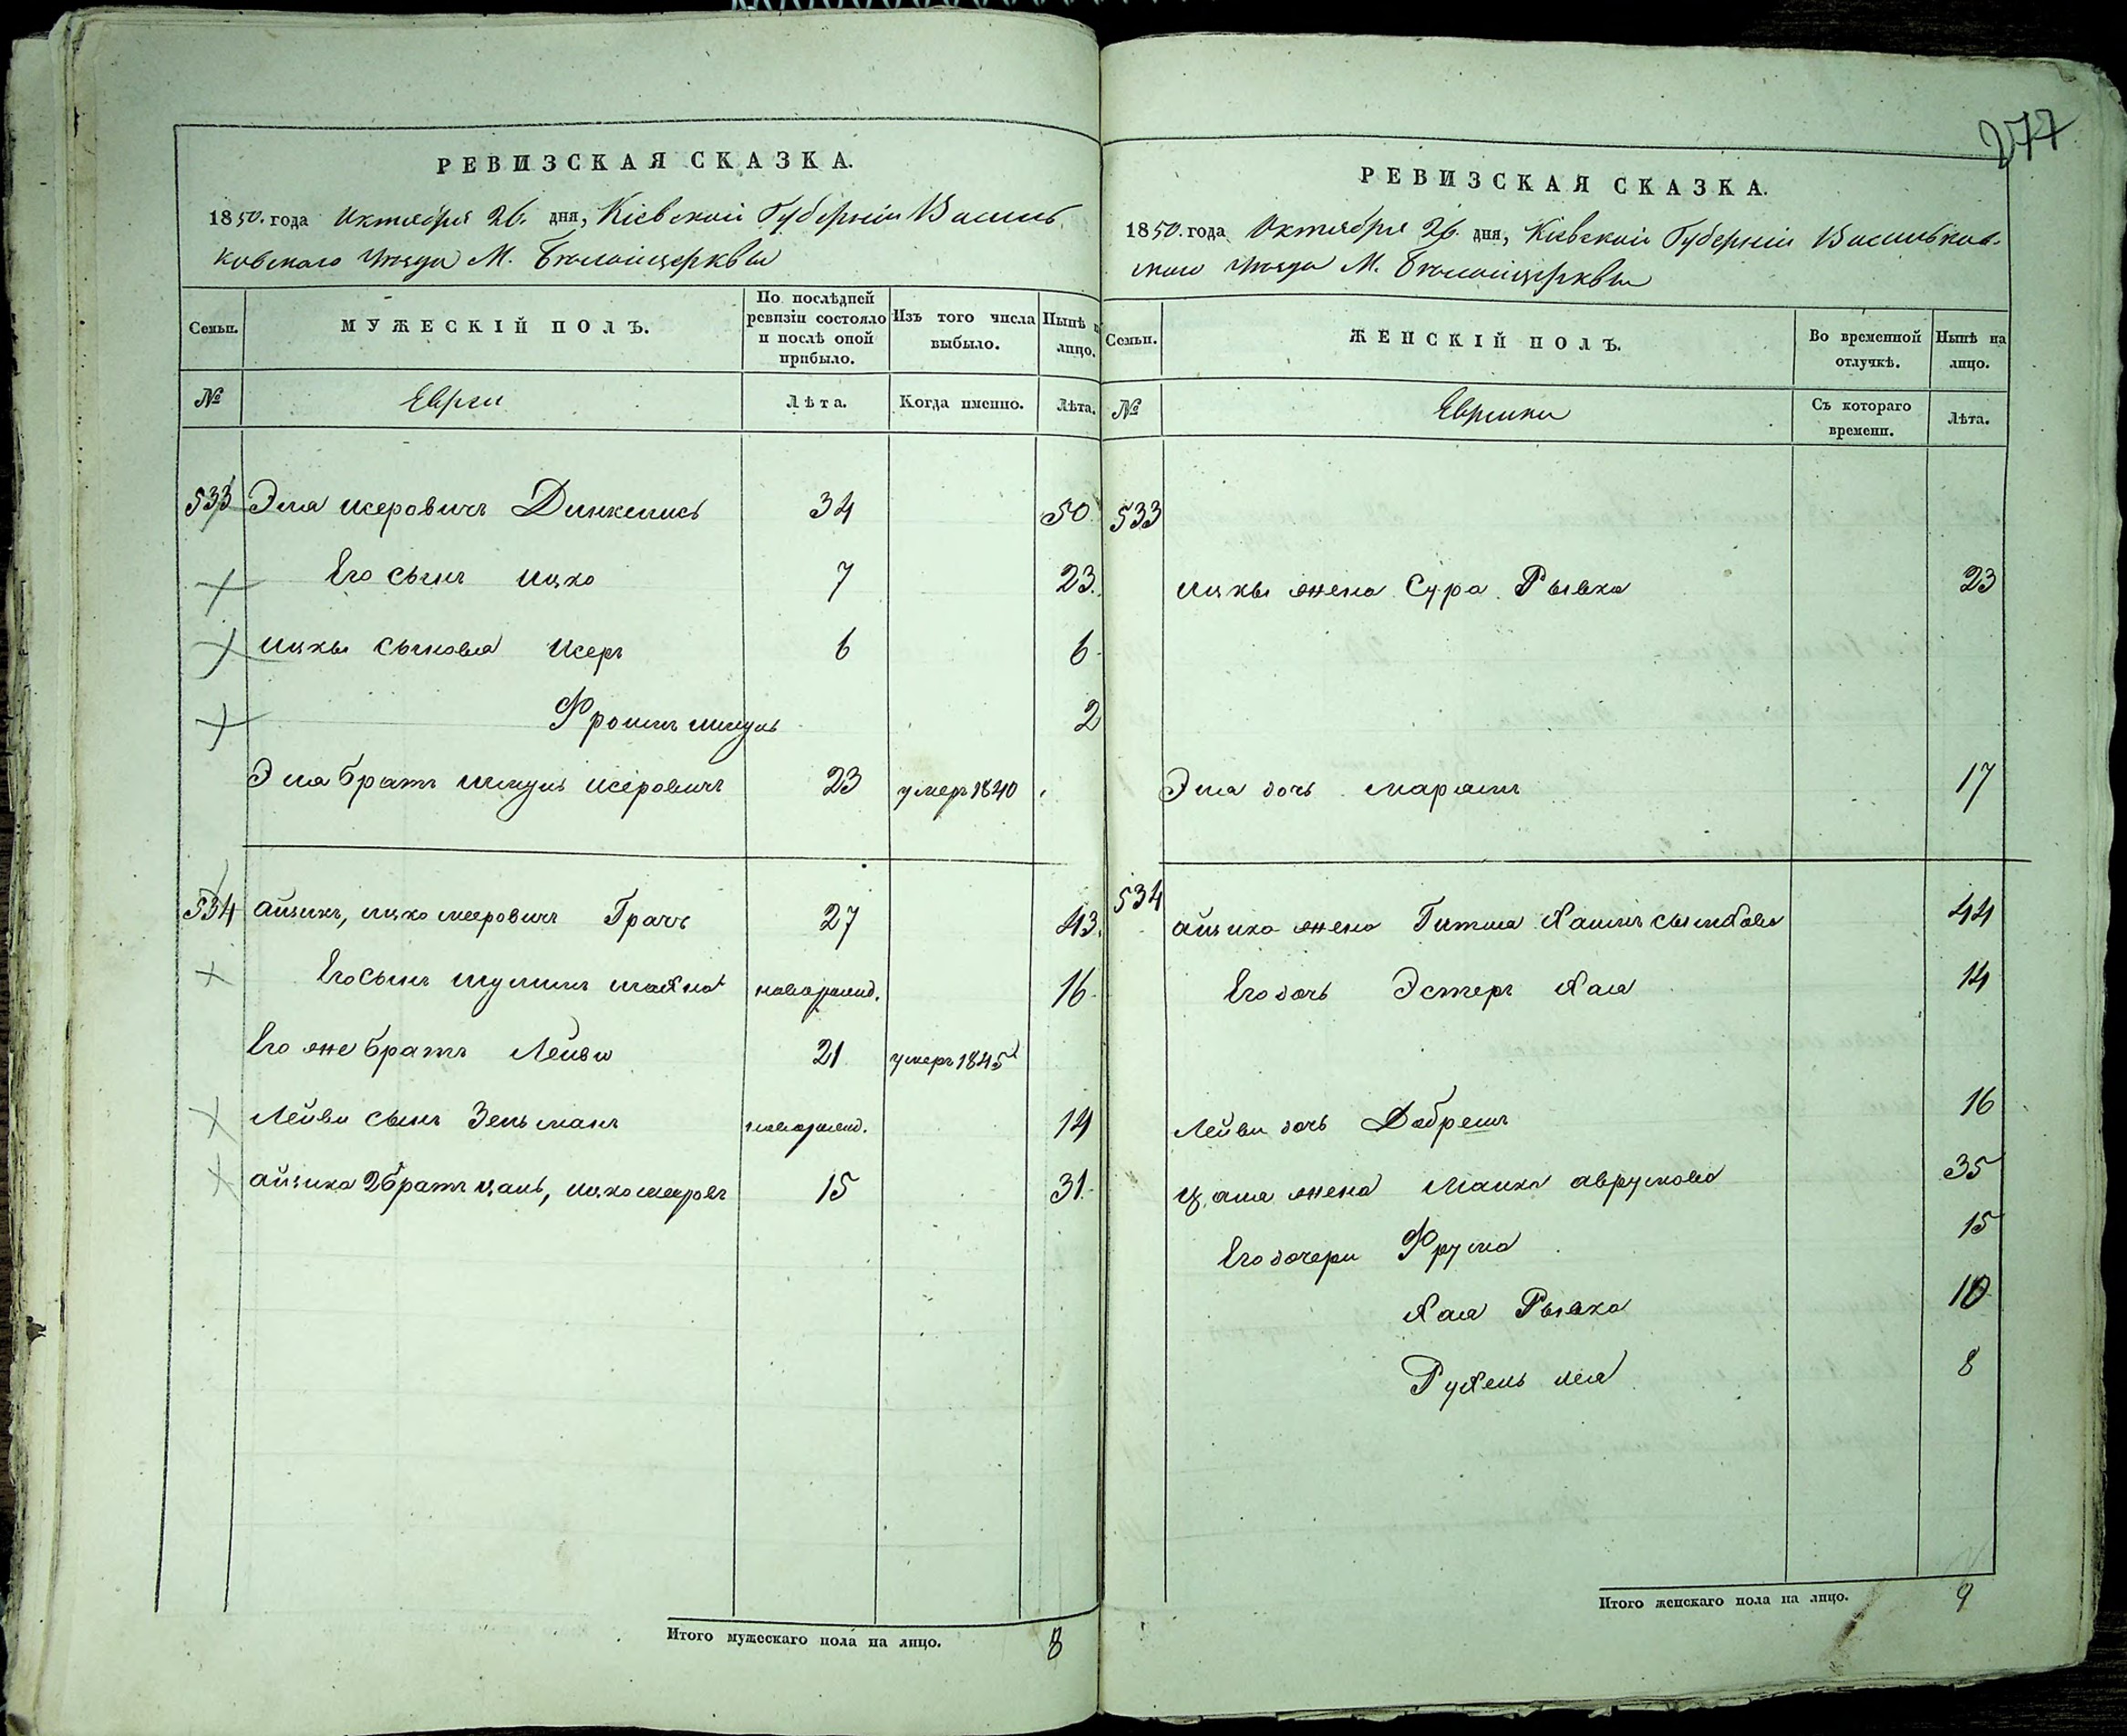 277
РЕВИЗСКАЯ СКАЗКА.
1850. года Октября 26. дня, Кіевской Губерніи Василь
ковскаго Уѣзда М. Бѣлойцеркви
Семьи.
МУЖЕСКІЙ ПОЛЪ.
По послѣдней ревизіи состояло и послѣ оной прибыло.
Изъ того числа выбыло.
Нынѣ на лицо.
№
Евреи
Лѣта.
Когда именно.
Лѣта.
533 Эля Исеровичъ 34 50
Его сынъ Ицко 7 23.
Ицки сыновья Исеръ 6 6
Фроимъ Шмуль 2
Эля братъ Шмуль Исеровичъ 23 умеръ 1840
534 Айзикъ, Ицко Мееровичъ Грачъ 27 43.
Его сынъ 16
Его же братъ Лейви 21 умеръ 1845
Лейви сынъ Зельманъ новорожд. 14
Айзика 2 братъ Цаль, Ицко 15 31.
Итого мужескаго пола на лицо. 8
РЕВИЗСКАЯ СКАЗКА.
1850. года Октября 26. дня, Кіевской Губерніи Васильков-
скаго Уѣзда М. Бѣлойцеркви
Семьи.
ЖЕНСКІЙ ПОЛЪ.
Во временной отлучкѣ.
Нынѣ на лицо.
№
Еврейки
Съ котораго времени.
Лѣта.
533
Ицки жена Сура Рывка 23
Эля дочь 17
534
Айзика жена Гитля 44
Его дочь Эстеръ Хая 14
Лейви дочь Добрешъ 16
Цаля жена 35
Его дочери Фрума 15
Хая Рывка 10
Рухель Лея 8
Итого женскаго пола на лицо. 9